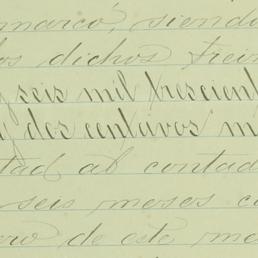 marcó, siendo
los dichos trein
y seis mil trescient
y dos centavos m
tad al contad
seis meses c
ero de este m